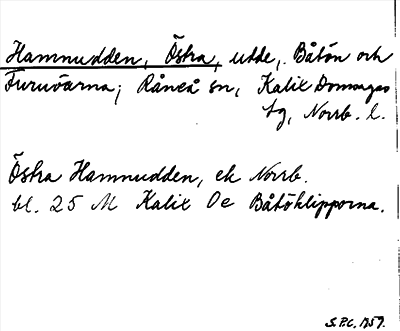 Hamnudden, Östra, udde, Båtön och
Furuöarna; Råneå sn, Kalix Domsagas
tg, Norrb. l.
Östra Hamnudden, ek Norrb.
bl. 25 M Kalix De Båtöklipporna.
S.P.C. 1757.